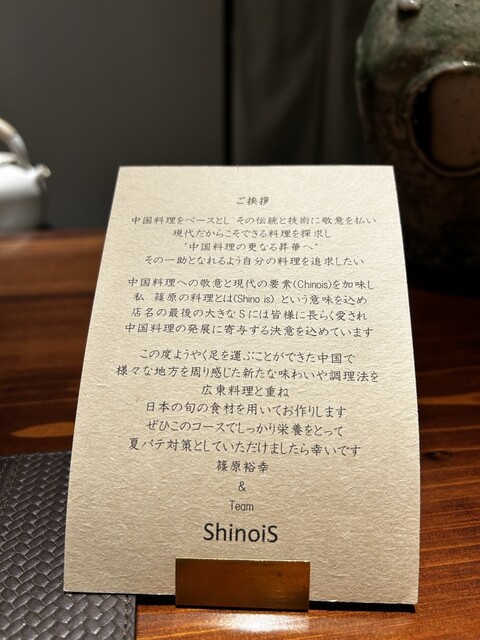 ご挨拶
中国料理をベースとし その伝統と技術に敬意を払い
現代だからこそできる料理を探求し
"中国料理の更なる昇華へ"
その一助となれるよう自分の料理を追求したい
中国料理への敬意と現代の要素(Chinois)を加味し
私 篠原の料理とは(Shino is) という意味を込め
店名の最後の大きなSには皆様に長らく愛され
中国料理の発展に寄与する決意を込めています
この度ようやく足を運ぶことができた中国で
様々な地方を周り感じた新たな味わいや調理法を
広東料理と重ね
日本の旬の食材を用いてお作りします
ぜひこのコースでしっかり栄養をとって
夏バテ対策としていただけましたら幸いです
篠原裕幸
&
Team
ShinoiS